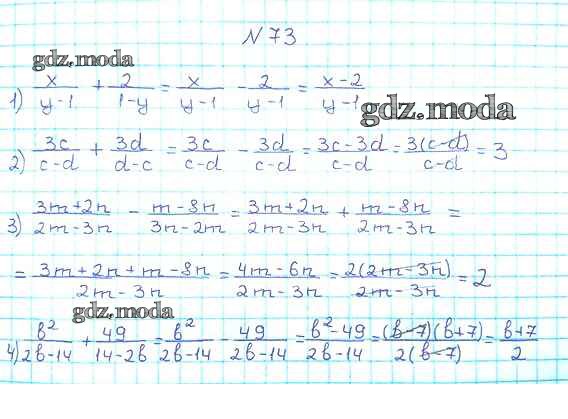 N 73
gdz.moda
1) x/(y-1) + 2/(1-y) = x/(y-1) - 2/(y-1) = (x-2)/(y-1)
gdz.moda
2) 3c/(c-d) + 3d/(d-c) = 3c/(c-d) - 3d/(c-d) = (3c-3d)/(c-d) = 3(c-d)/(c-d) = 3
3) (3m+2n)/(2m-3n) - (m-8n)/(3n-2m) = (3m+2n)/(2m-3n) + (m-8n)/(2m-3n) =
= (3m+2n+m-8n)/(2m-3n) = (4m-6n)/(2m-3n) = 2(2m-3n)/(2m-3n) = 2
gdz.moda
4) b²/(2b-14) + 49/(14-2b) = b²/(2b-14) - 49/(2b-14) = (b²-49)/(2b-14) = (b-7)(b+7)/2(b-7) = (b+7)/2